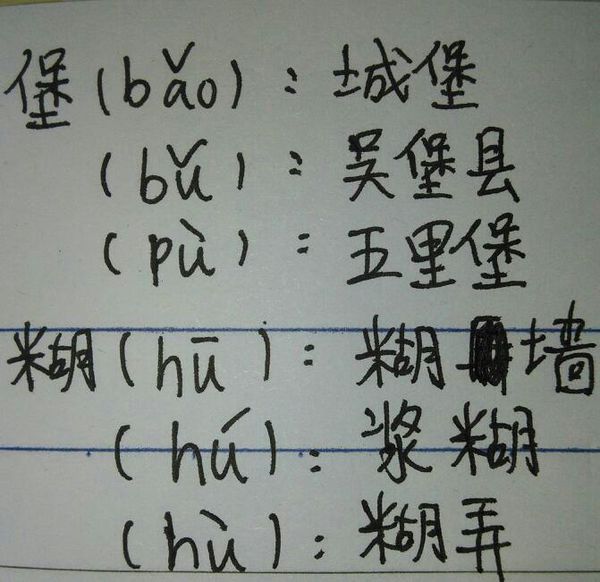 堡(bǎo)：城堡
(bǔ)：吴堡县
(pù)：五里堡
糊(hū)：糊墙
(hú)：浆糊
(hù)：糊弄